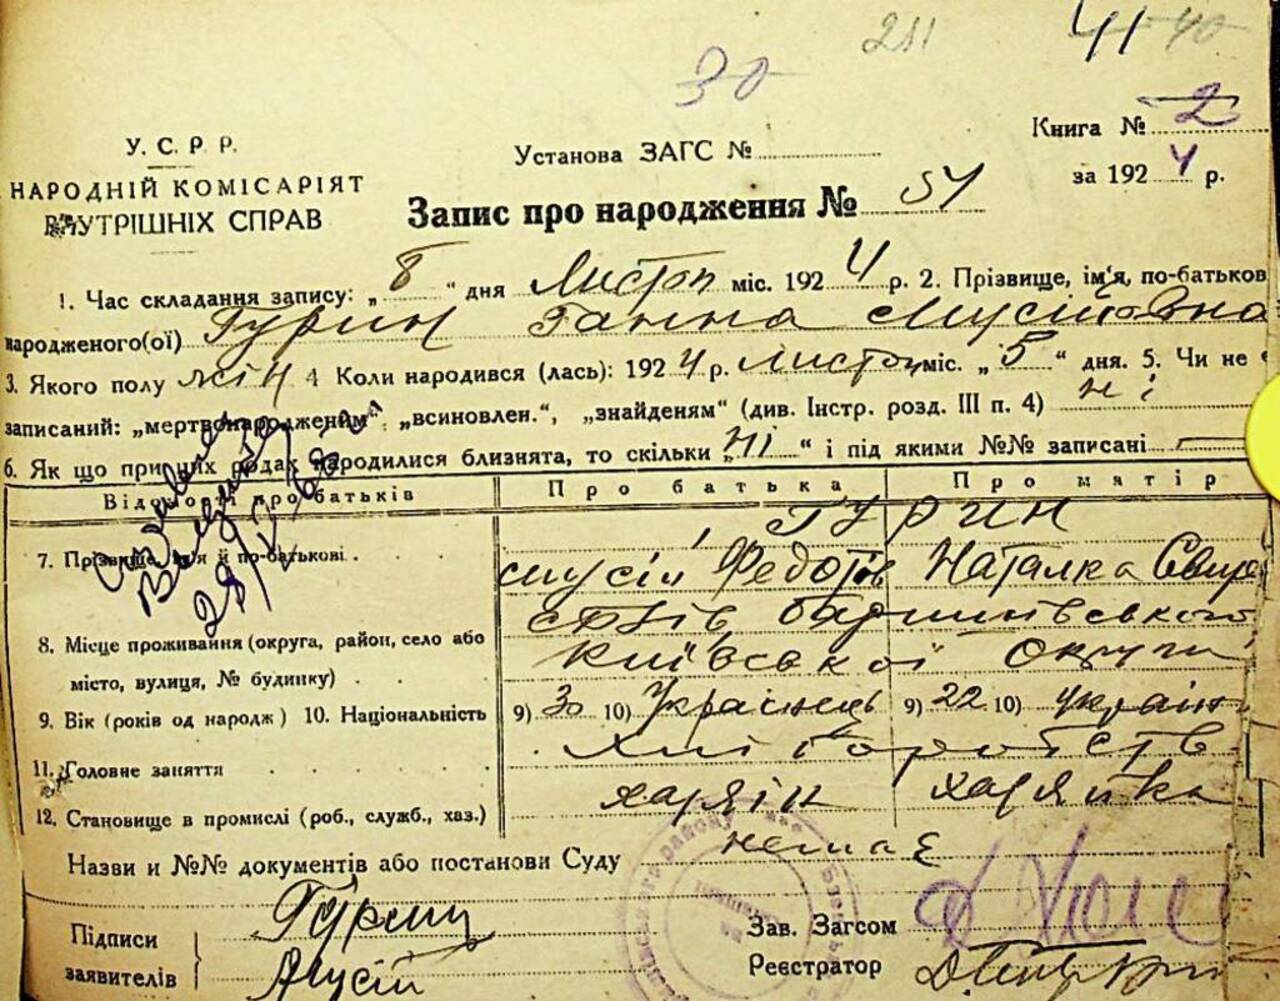 211 41 40
30
Книга № 2
У. С. Р. Р.
Установа ЗАГС №
за 1924 р.
НАРОДНІЙ КОМІСАРІЯТ
ВНУТРІШНІХ СПРАВ
Запис про народження № 54
1. Час складання запису: „ 8 “ дня Листоп міс. 1924 р. 2. Прізвище, ім'я, по-батьков
народженого(ої) Гурин Ганна Мусійовна
3. Якого полу жін 4 Коли народився (лась): 1924 р. листоп міс. „ 5 “ дня. 5. Чи не
записаний: „мертвонародженим“, „всиновлен.“, „знайденям“ (див. Інстр. розд. III п. 4) ні
6. Як що при цих родах народилися близнята, то скільки „ ні “ і під якими №№ записані
Відомості про батьків Про батька Про матір
Гурин
7. Прізвище, ім'я й по-батькові . Мусій Федотів Наталка
8. Місце проживання (округа, район, село або
місто, вулиця, № будинку) . Київської Округи
9. Вік (років од народж) 10. Національність 9) 30 10) Українець 9) 22 10) україн
11. Головне заняття хліборобств
12. Становище в промислі (роб., служб., хаз.) харяін харяйка
Назви и №№ документів або постанови Суду немає
Підписи Гурин Зав. Загсом
заявителів Мусій Реєстратор